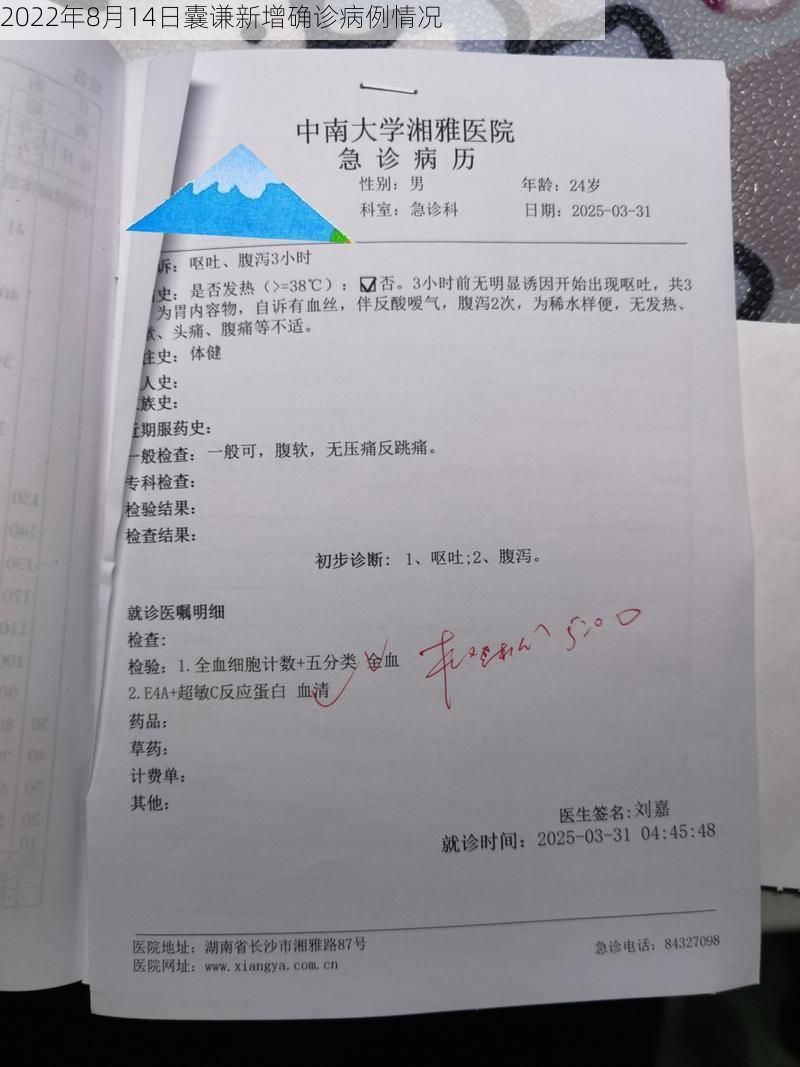 2022年8月14日囊谦新增确诊病例情况
中南大学湘雅医院
急诊病历
性别：男 年龄：24岁
科室：急诊科 日期：2025-03-31
诉：呕吐、腹泻3小时
史：是否发热（>=38℃）：☑否。3小时前无明显诱因开始出现呕吐，共3
为胃内容物，自诉有血丝，伴反酸嗳气，腹泻2次，为稀水样便，无发热、
、头痛、腹痛等不适。
往史：体健
人史：
族史：
近期服药史：
一般检查：一般可，腹软，无压痛反跳痛。
专科检查：
检验结果：
检查结果：
初步诊断：1、呕吐;2、腹泻。
就诊医嘱明细
检查：
检验：1.全血细胞计数+五分类 全血
2.E4A+超敏C反应蛋白 血清
5:00
药品：
草药：
计费单：
其他：
医生签名:刘嘉
就诊时间：2025-03-31 04:45:48
医院地址：湖南省长沙市湘雅路87号 急诊电话：84327098
医院网址：www.xiangya.com.cn